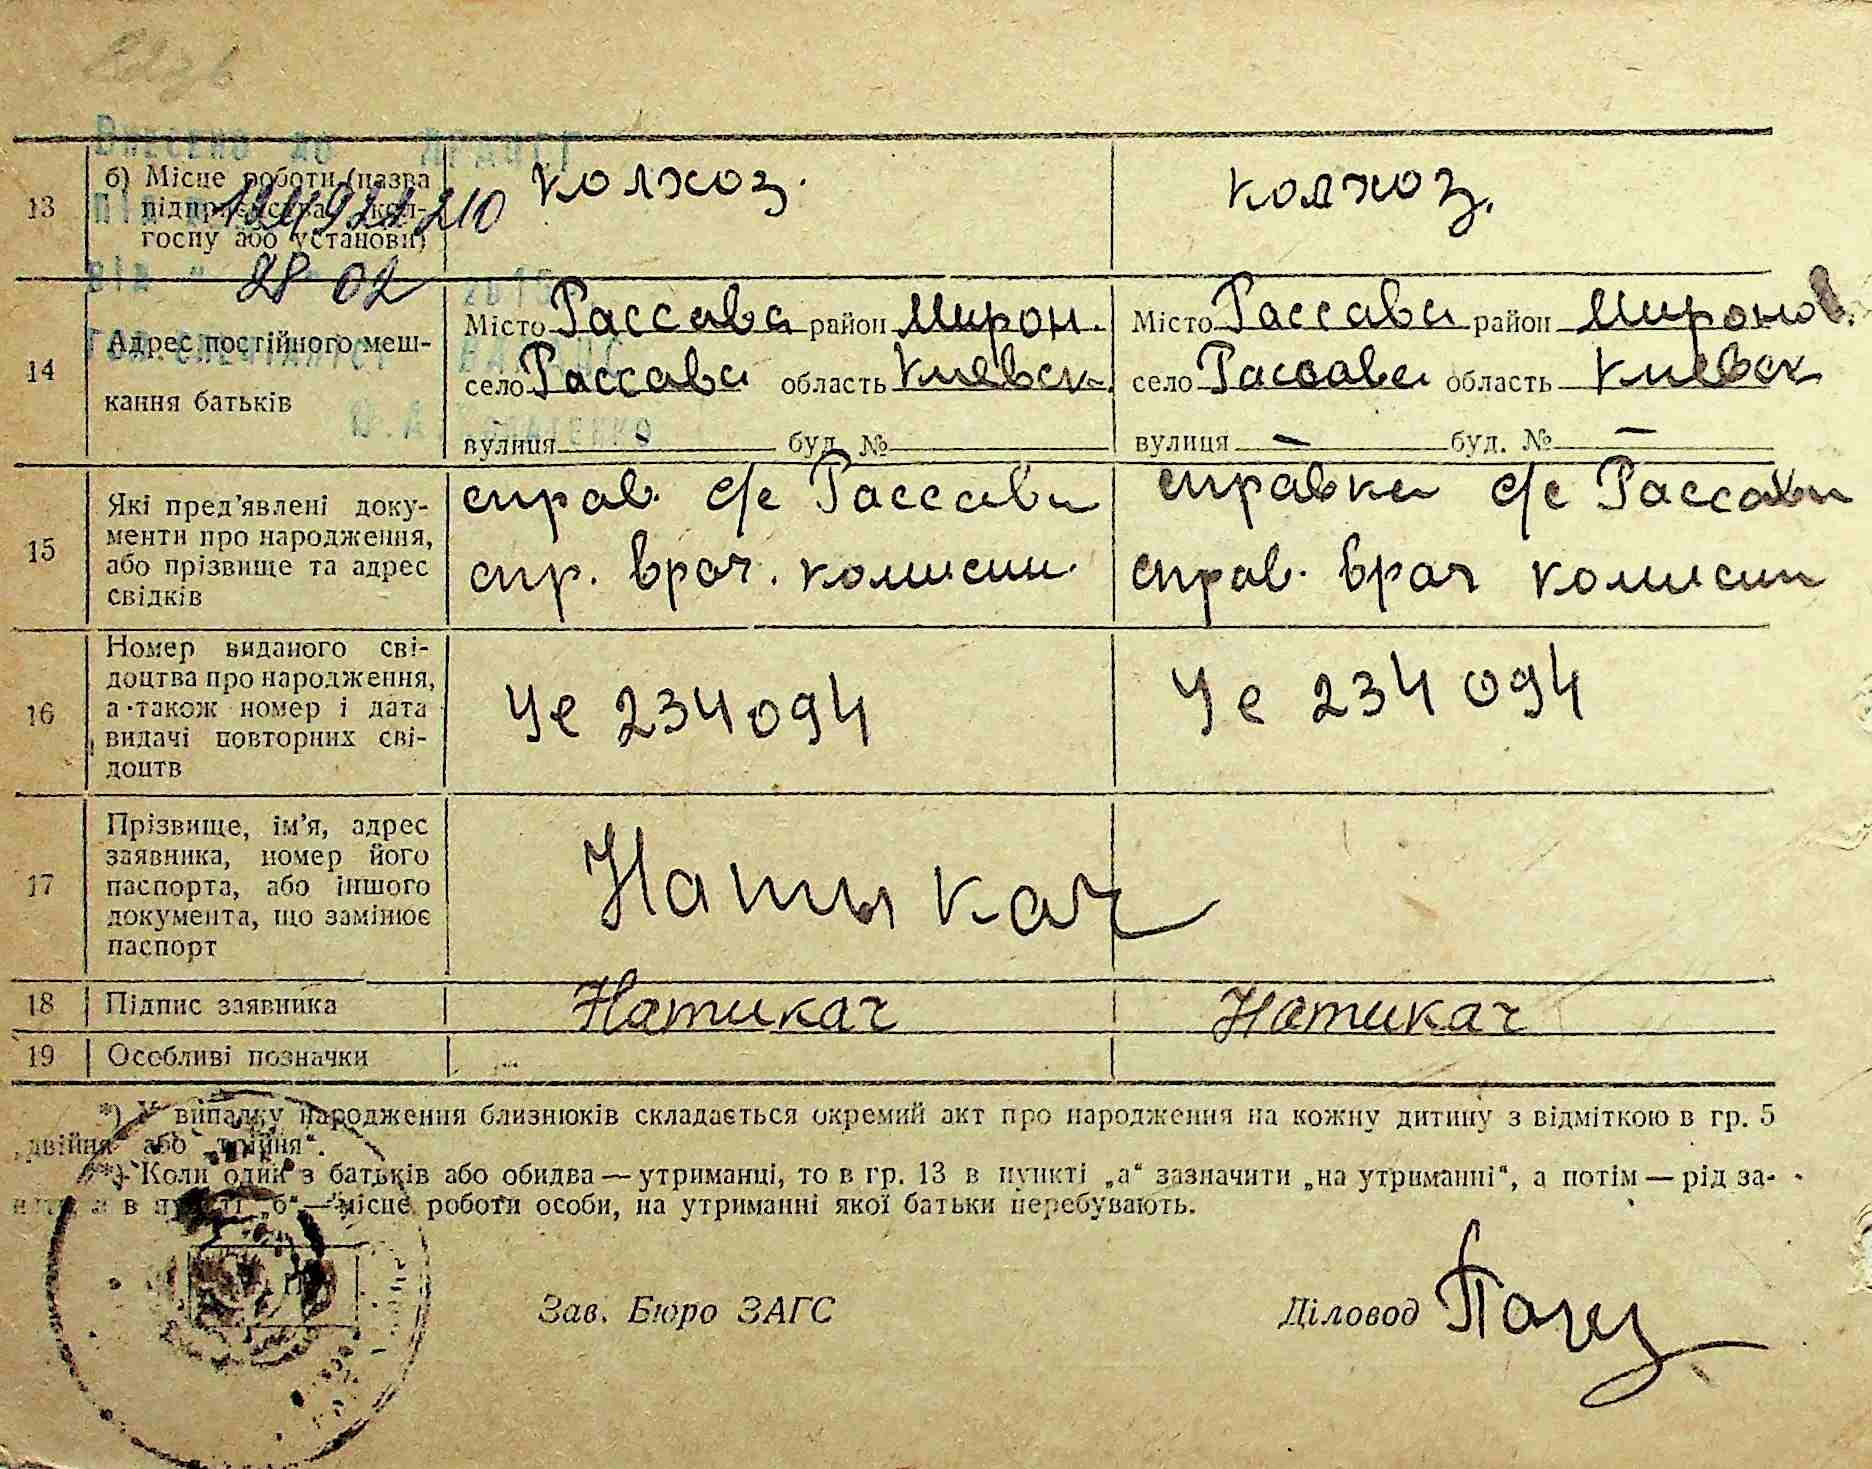 Внесено до ДРАЦСГ
13 б) Місце роботи (назва підприємства, колгоспу або установи) колхоз. колхоз.
124921210
від " 28 " 02 2015
14 Адрес постійного мешкання батьків
Місто Рассава район Мирон. Місто Рассава район Миронов.
село Рассава область Киевск. село Рассава область Киевск
вулиця - буд. № вулиця - буд. № -
15 Які пред'явлені документи про народження, або прізвище та адрес свідків
справ. с/с Рассави справка с/с Рассави
спр. врач. комисии. справ. врач комисии
16 Номер виданого свідоцтва про народження, а також номер і дата видачі повторних свідоцтв
Че 234094 Че 234094
17 Прізвище, ім'я, адрес заявника, номер його паспорта, або іншого документа, що замінює паспорт
Натыкач
18 Підпис заявника Натикач Натикач
19 Особливі позначки
*) У випадку народження близнюків складається окремий акт про народження на кожну дитину з відміткою в гр. 5
„двійня“ або „трійня“.
**) Коли один з батьків або обидва — утриманці, то в гр. 13 в пункті „а“ зазначити „на утриманні“, а потім — рід за-
а в пункті „б“ — місце роботи особи, на утриманні якої батьки перебувають.
Зав. Бюро ЗАГС Діловод